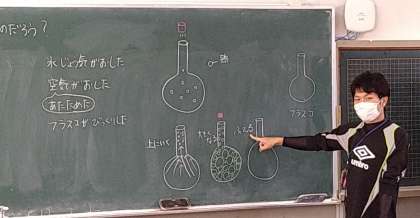 のだろう？
水じょう気がおした
空気がおした
あたためた
フラスコがびっくりした
フラスコ
上にいく
大きく
なる
umbro